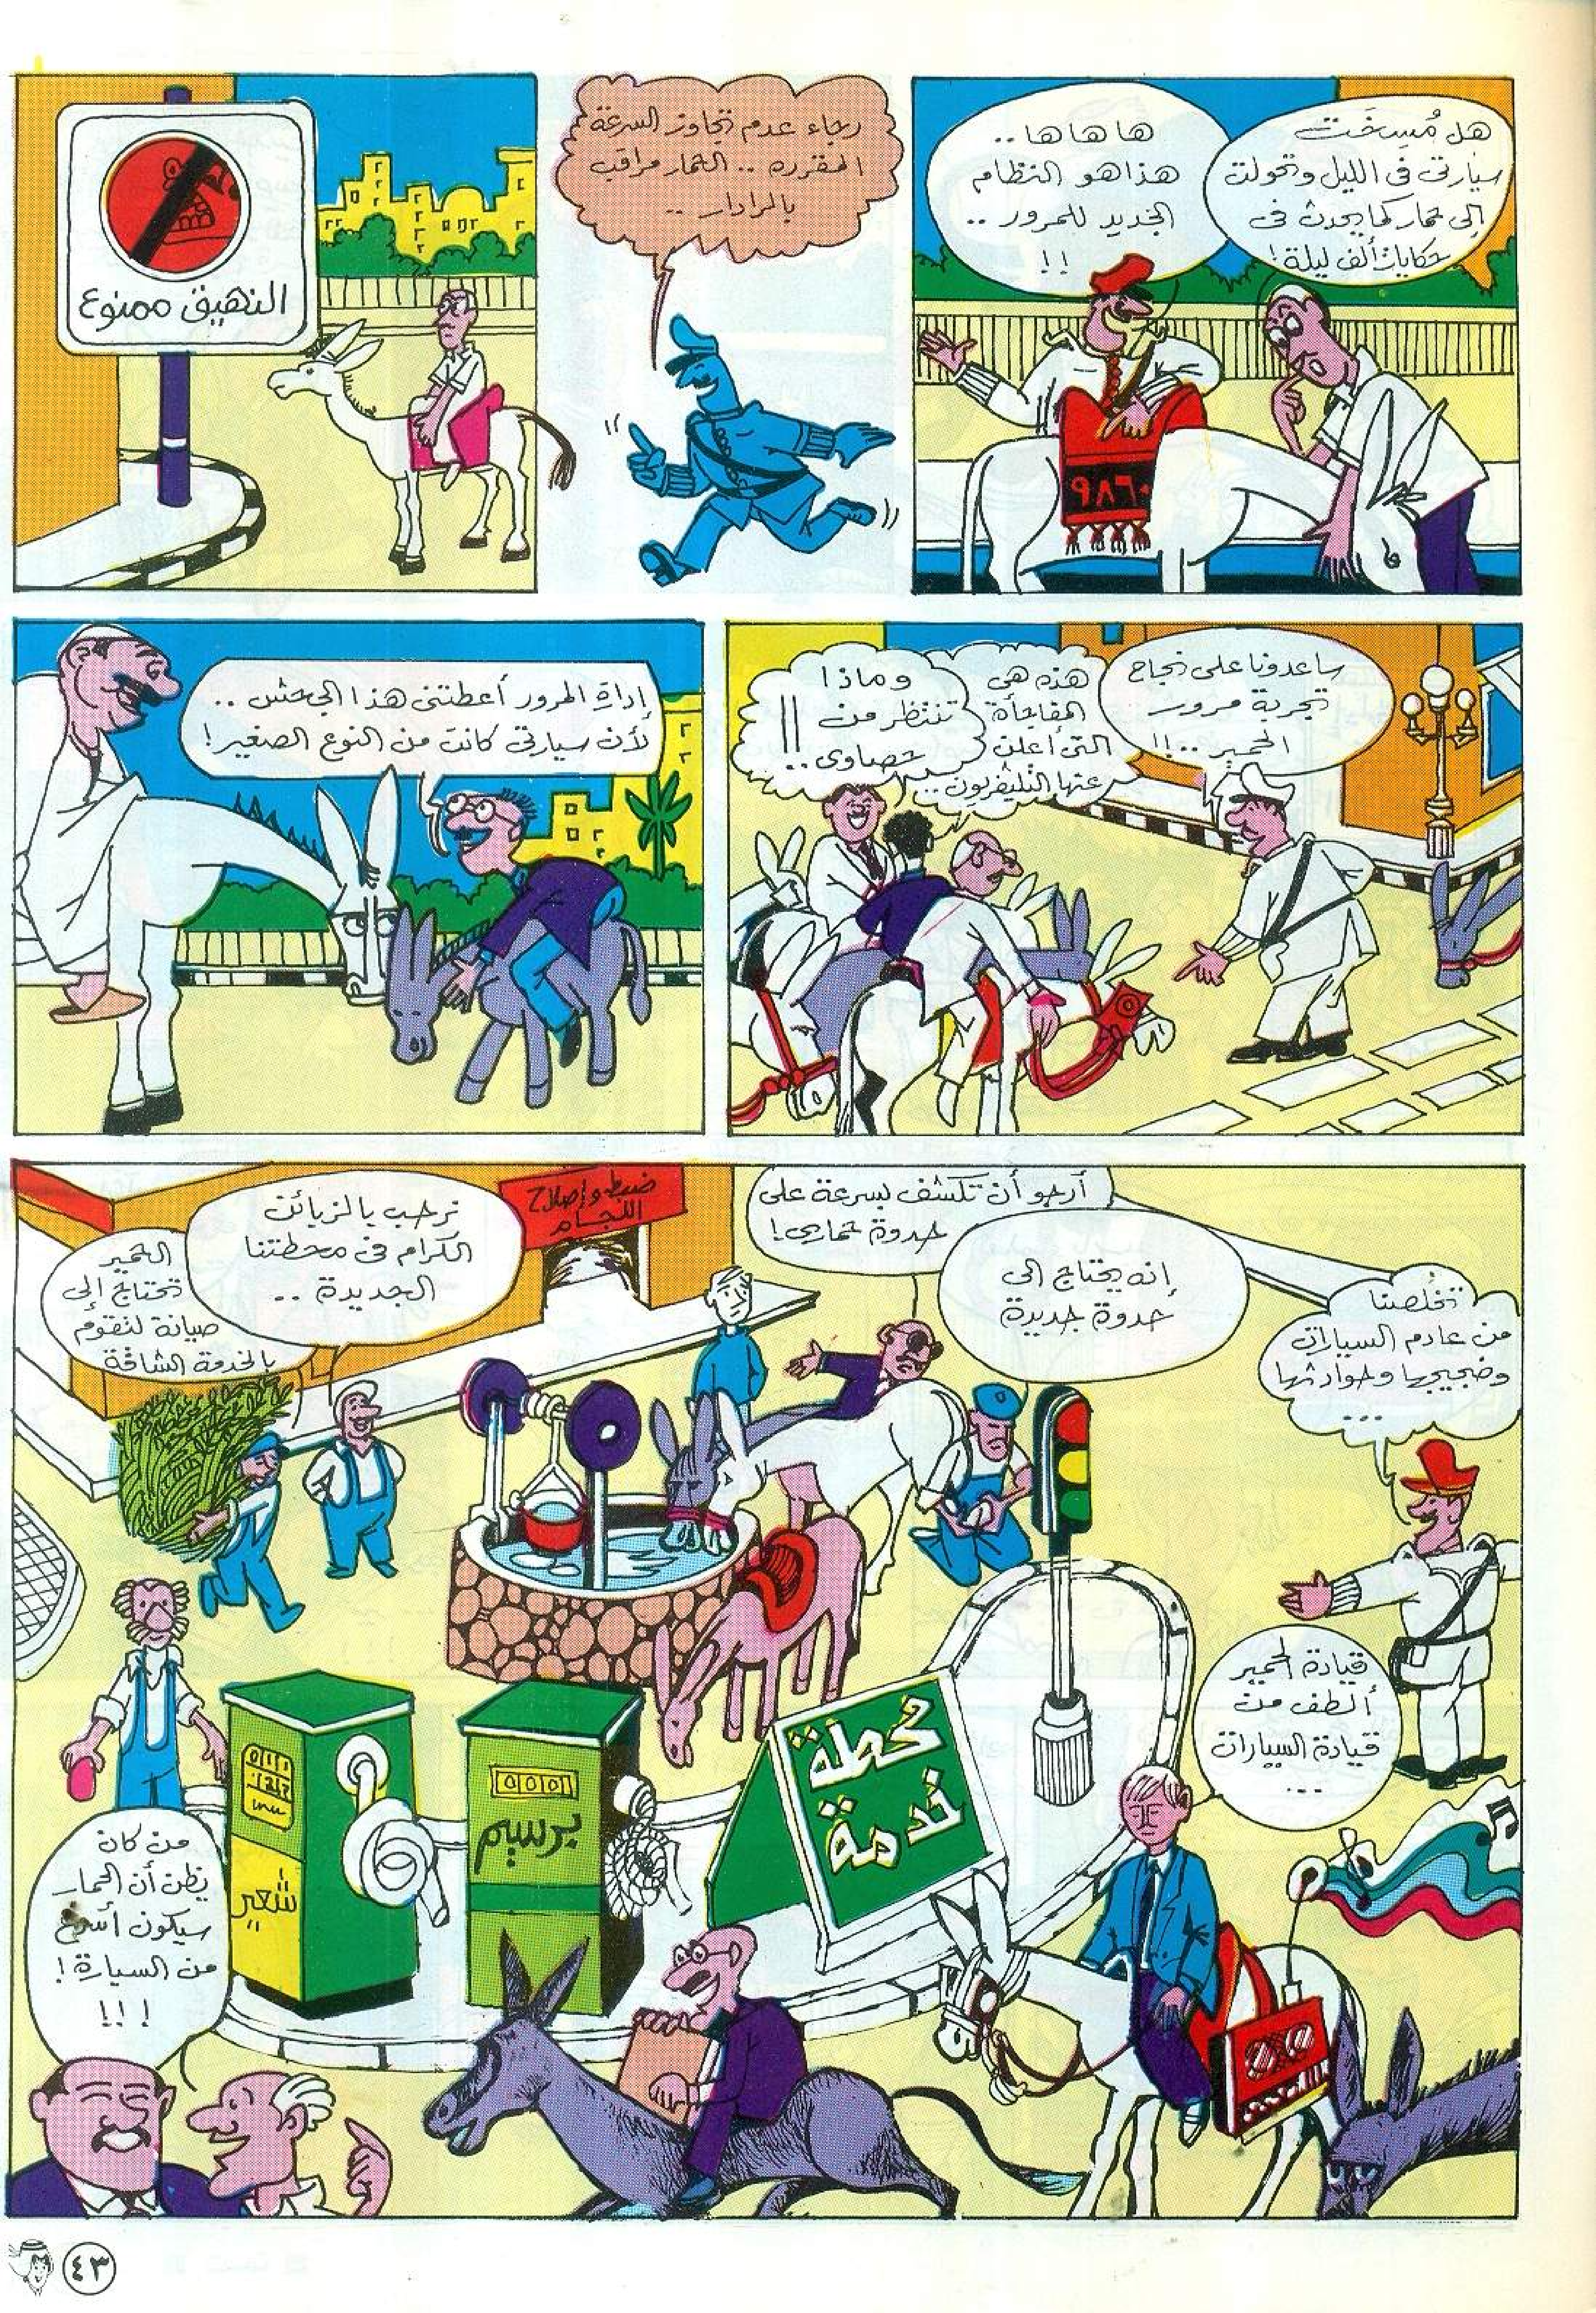 هل مُسِخَت
سيارتى فى الليل وتحولت
إلى حمار كما يحدث فى
حكايات ألف ليلة!
ها ها ها ..
هذا هو النظام
الجديد للمرور ..
!!
٩٨٦٠
رجاء عدم تجاوز السرعة
المقررة .. الحمار مراقب
بالرادار ..
النهيق ممنوع
ساعدونا على نجاح
تجربة مرور
الحمير ..!!
هذه هى
المفاجأة
التى أعلن
عنها التليفزيون ..
وماذا
تنتظر من
حصاوى ..
!!
إدارة المرور أعطتنى هذا الجحش ..
لأن سيارتى كانت من النوع الصغير!
تخلصنا
من عادم السيارات
وضجيجها وحوادثها
...
أرجو أن تكشف بسرعة على
حدوة حمارى!
إنه يحتاج إلى
حدوة جديدة
ضبط وإصلاح
اللجام
نرحب بالزبائن
الكرام فى محطتنا
الجديدة ..
الحمير
تحتاج إلى
صيانة لتقوم
بالخدمة الشاقة
قيادة الحمير
ألطف من
قيادة السيارات
...
محطة
خدمة
برسيم
شعير
من كان
يظن أن الحمار
سيكون أسرع
من السيارة!
!!!
٤٣